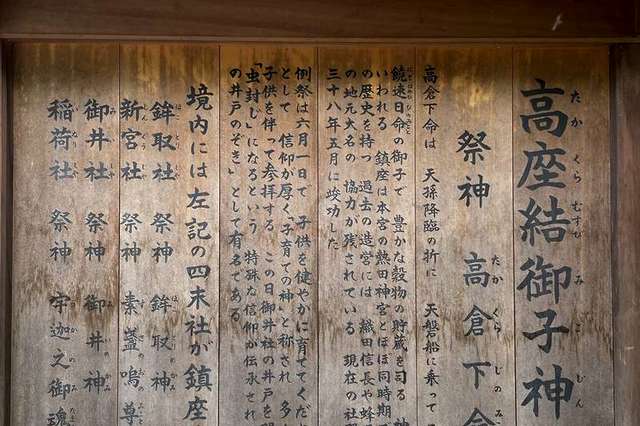 高座結御子神
たか くら むすび み こ じん
祭神 高倉下命
たか くら じの みこと
高倉下命は 天孫降臨の折に 天磐船に乗って
饒速日命の御子で 豊かな穀物の貯蔵を司る 神
にぎはやひのみこと
いわれる 鎮座は本宮の熱田神宮とほぼ同時期で
の歴史を持つ 過去の造営には 織田信長や蜂
の地元大名の 協力が残されている 現在の社殿
三十八年五月に竣功した
例祭は六月一日で 子供を健やかに育ててくだ
として 信仰が厚く「子育ての神」と称され 多
子供を伴って参拝する この日御井社の井戸を
「虫封じ」になるという 特殊な信仰が伝承され
の井戸のぞき」として有名である
境内には左記の四末社が鎮座
鉾取社 祭神 鉾取神
新宮社 祭神 素盞嗚尊
御井社 祭神 御井神
稲荷社 祭神 宇迦之御魂